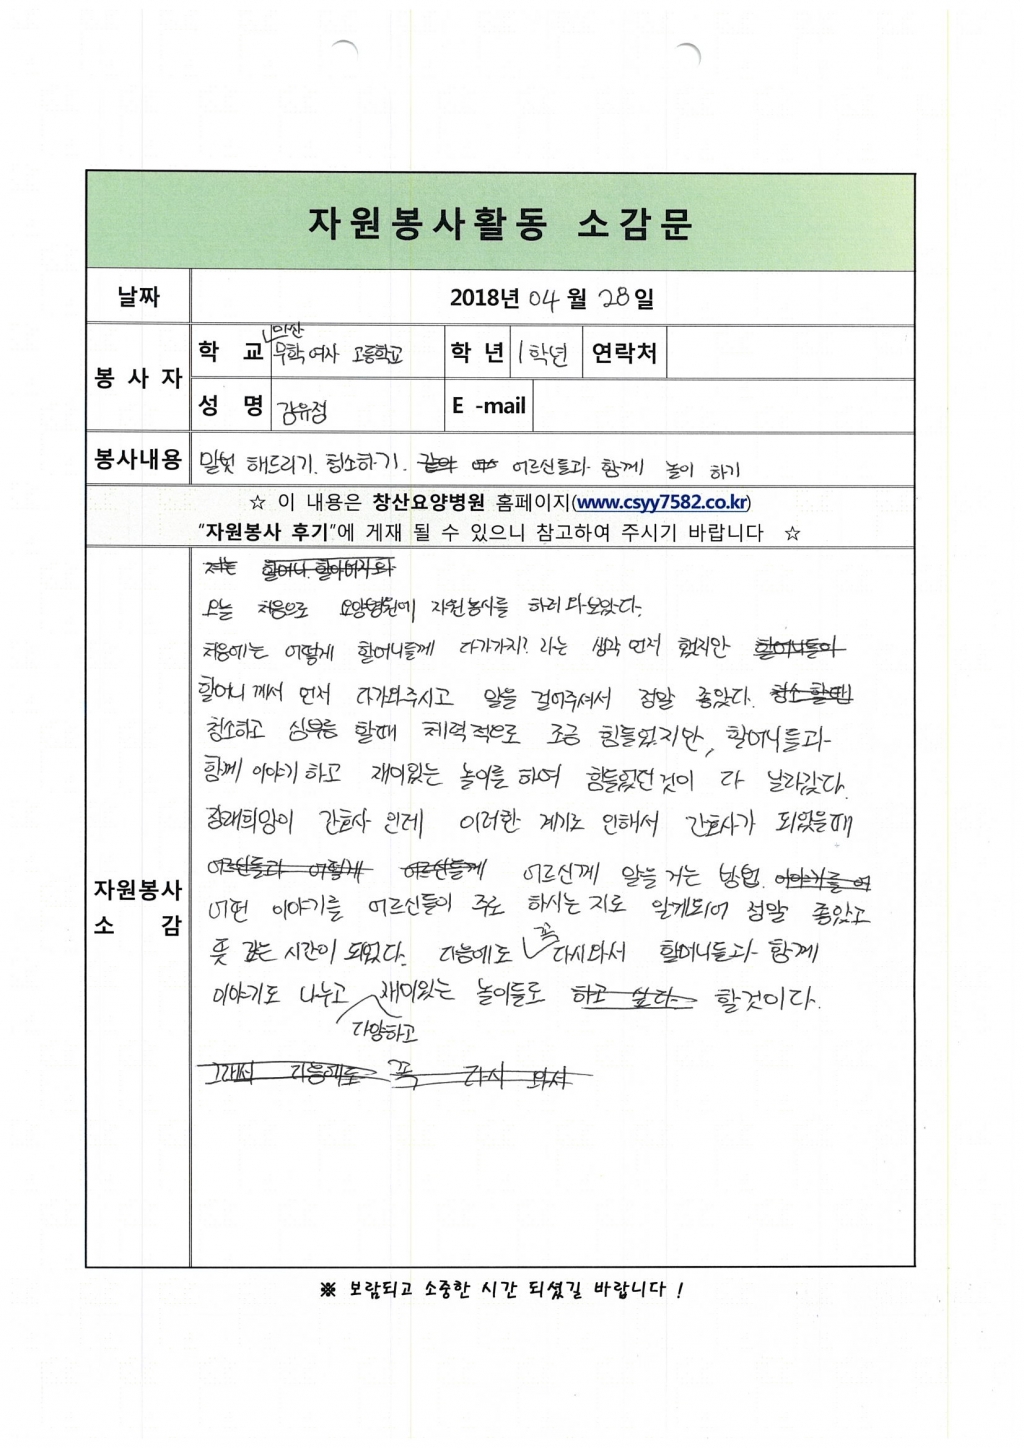 자원봉사활동 소감문
날짜 2018년 04월 28일
봉사자 학교 마산 무학여자 고등학교 학년 1학년 연락처
성명 김유정 E-mail
봉사내용 말벗 해드리기. 청소하기. 어르신들과 함께 놀이 하기
☆ 이 내용은 창산요양병원 홈페이지(www.csyy7582.co.kr)
"자원봉사 후기"에 게재 될 수 있으니 참고하여 주시기 바랍니다 ☆
자원봉사 소감
저는 할머니. 할아버지와
오늘 처음으로 요양병원에 자원봉사를 하러 와보았다.
처음에는 어떻게 할머니들께 다가가지? 라는 생각 먼저 했지만 할머니들이
할머니 께서 먼저 다가와주시고 말을 걸어주셔서 정말 좋았다. 청소 할때
청소하고 심부름 할때 체력적으로 조금 힘들었지만, 할머니들과
함께 이야기 하고 재미있는 놀이를 하여 힘들었던 것이 다 날라갔다.
장래희망이 간호사 인데 이러한 계기로 인해서 간호사가 되었을때
어르신들과 어떻게 어르신들께 어르신께 말을 거는 방법. 이야기를
어떤 이야기를 어르신들이 주로 하시는 지도 알게되어 정말 좋았고
뜻 깊은 시간이 되었다. 다음에도 꼭 다시와서 할머니들과 함께
이야기도 나누고 다양하고 재미있는 놀이들로 하고 싶다. 할것이다.
그래서 다음에도 꼭 다시 와서
※ 보람되고 소중한 시간 되셨길 바랍니다 !